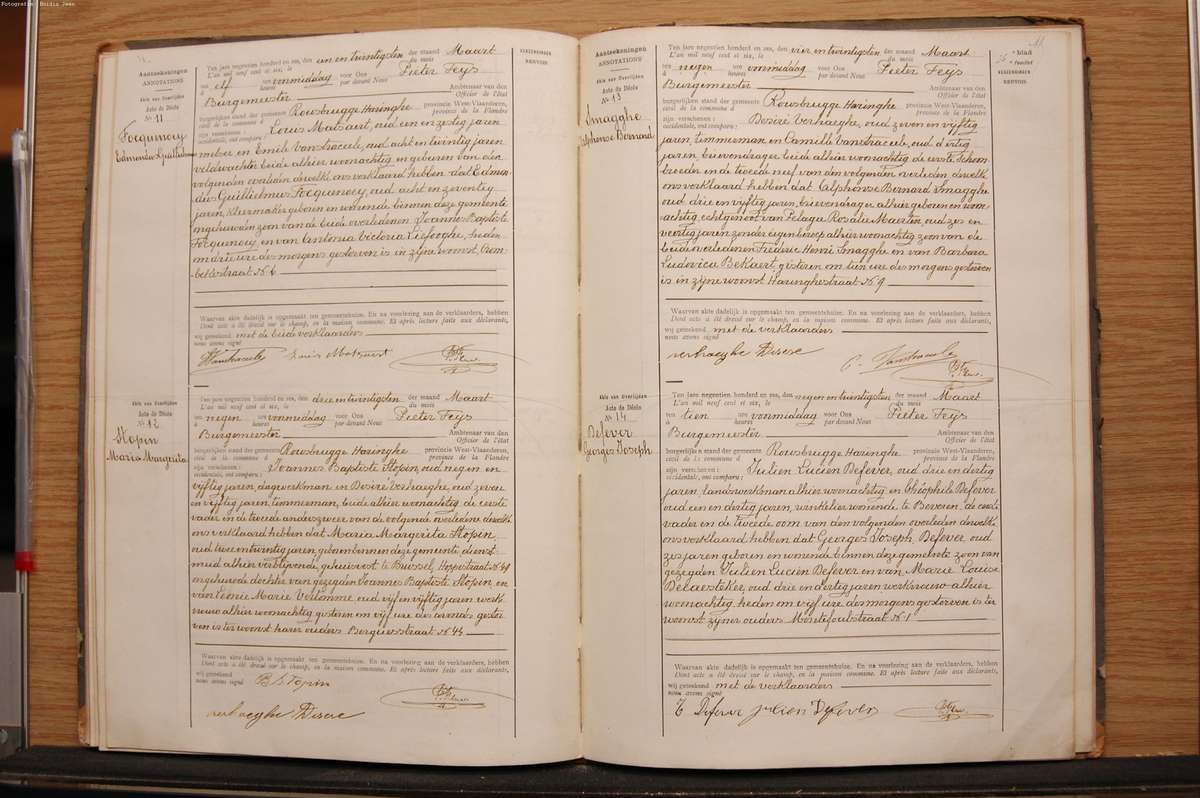 Fotografie: Buidin Jean
Aanteekeningen
ANNOTATIONS
Akte van Overlijden
Acte de Décès
N° 11
Focquncey
Edmondus Guillielmus
Ten jare negentien honderd en zes, den een en twintigsten der maand Maart
L'an mil neuf cent et six, le du mois
ten elf ure voormiddag voor Ons Pieter Feys
à heures par devant Nous
Burgemeester Ambtenaar van den
Officier de l'état
burgerlijken stand der gemeente Rousbrugge Haringhe provincie West-Vlaanderen,
civil de la commune d province de la Flandre
zijn verschenen: Louis Matsaert, oud een en zestig jaren
occidentale, ont comparu:
metser en Emiel Vanstracele, oud acht en twintig jaren
veldwachter beide alhier woonachtig en geburen van den
volgenden overleden dewelke ons verklaard hebben dat Edmon-
dus Guillielmus Focquncey, oud acht en zeventig
jaren, kleermaker geboren en wonende binnen deze gemeente
ongehuwden zoon van de beide overledenen Joannes Baptiste
Focquncey, en van Antonia Victoria heden
om drie ure des morgens gestorven is in zijne woonst, Crom-
bekestraat N° 6
Waarvan akte dadelijk is opgemaakt ten gemeentehuize. En na voorlezing aan de verklaarders, hebben
Dont acte a été dressé sur le champ, en la maison commune. Et après lecture faite aux déclarants,
wij geteekend met de beide verklaarders
nous avons signé
EVanstracele Louis Matsaert P. Feys
Akte van Overlijden
Acte de Décès
N° 12
Stopin
Maria Margerita
Ten jare negentien honderd en zes, den drie en twintigsten der maand Maart
L'an mil neuf cent et six, le du mois
ten negen ure voormiddag voor Ons Pieter Feys
à heures par devant Nous
Burgemeester Ambtenaar van den
Officier de l'état
burgerlijken stand der gemeente Rousbrugge Haringhe provincie West-Vlaanderen,
civil de la commune d province de la Flandre
zijn verschenen: Joannes Baptiste Stopin, oud negen en
occidentale, ont comparu:
vijftig jaren, dagwerkman en Desiré Verhaeghe oud zeven
en vijftig jaren, timmerman, beide alhier woonachtig de eerste
vader en de tweede anderszweer van de volgende overledene dewelke
ons verklaard hebben dat Maria Margerita Stopin
oud twee en twintig jaren, geboren binnen deze gemeente, dienst-
meid alhier verblijvende, gehuisvest te Brussel, Hospicestraat N°
ongehuwde dochter van gezegden Joannes Baptiste Stopin, en
van Leonie Marie Verlomme oud vijf en vijftig jaren werk-
vrouw alhier woonachtig, gisteren om vijf ure des avonds gestor-
ven is ter woonst harer ouders Berguesstraat N° 44
Waarvan akte dadelijk is opgemaakt ten gemeentehuize. En na voorlezing aan de verklaarders, hebben
Dont acte a été dressé sur le champ, en la maison commune. Et après lecture faite aux déclarants,
wij geteekend
nous avons signé
B Stopin
verhaeghe Desire P. Feys
11
blad
feuillet
Aanteekeningen
ANNOTATIONS
Akte van Overlijden
Acte de Décès
N° 13
Smagghe
Alphonse Bernard
Ten jare negentien honderd en zes, den vier en twintigsten der maand Maart
L'an mil neuf cent et six, le du mois
ten negen ure voormiddag voor Ons Pieter Feys
à heures par devant Nous
Burgemeester Ambtenaar van den
Officier de l'état
burgerlijken stand der gemeente Rousbrugge Haringhe provincie West-Vlaanderen,
civil de la commune d province de la Flandre
zijn verschenen: Desiré Verhaeghe, oud zeven en vijftig
occidentale, ont comparu:
jaren, timmerman en Camille Vanstracele, oud dertig
jaren, brievendrager beide alhier woonachtig de eerste schoon-
broeder en de tweede neef van den volgenden overleden dewelke
ons verklaard hebben dat Alphonse Bernard Smagghe
oud drie en vijftig jaren, brievendrager alhier geboren en woon-
achtig echtgenoot van Pelagia Rosalie Maerten, oud zes en
veertig jaren zonder eigen beroep alhier woonachtig zoon van de
beide overledenen Frederic Henri Smagghe en van Barbara
Ludovica Bekaert, gisteren om tien ure des morgens gestorven
is in zijne woonst Haringhestraat N° 9
Waarvan akte dadelijk is opgemaakt ten gemeentehuize. En na voorlezing aan de verklaarders, hebben
Dont acte a été dressé sur le champ, en la maison commune. Et après lecture faite aux déclarants,
wij geteekend met de verklaarders
nous avons signé
verhaeghe Desire C. Vanstracele
P. Feys
Akte van Overlijden
Acte de Décès
N° 14
Defever
Georges Joseph
Ten jare negentien honderd en zes, den negen en twintigsten der maand Maart
L'an mil neuf cent et six, le du mois
ten tien ure voormiddag voor Ons Pieter Feys
à heures par devant Nous
Burgemeester Ambtenaar van den
Officier de l'état
burgerlijken stand der gemeente Rousbrugge Haringhe provincie West-Vlaanderen,
civil de la commune d province de la Flandre
zijn verschenen: Julien Lucien Defever, oud drie en dertig
occidentale, ont comparu:
jaren, landswerkman alhier woonachtig en Théophile Defever
oud een en dertig jaren, winkelier wonende te Beveren. de eerste
vader en de tweede oom van den volgenden overleden dewelke
ons verklaard hebben dat Georges Joseph Defever oud
zes jaren geboren en wonend binnen deze gemeente zoon van
gezegden Julien Lucien Defever en van Marie Louise
Delaesteker, oud drie en dertig jaren werkvrouw alhier
woonachtig, heden om vijf ure des morgens gestorven is ter
woonst zijner ouders Mostefoutstraat N° 1
Waarvan akte dadelijk is opgemaakt ten gemeentehuize. En na voorlezing aan de verklaarders, hebben
Dont acte a été dressé sur le champ, en la maison commune. Et après lecture faite aux déclarants,
wij geteekend met de verklaarders
nous avons signé
T Defever Julien Defever P. Feys